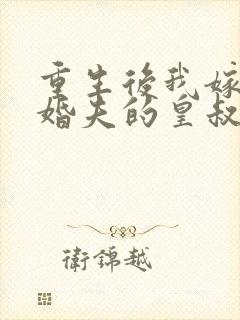 重生後我嫁
婚夫的皇叔
衛錦越